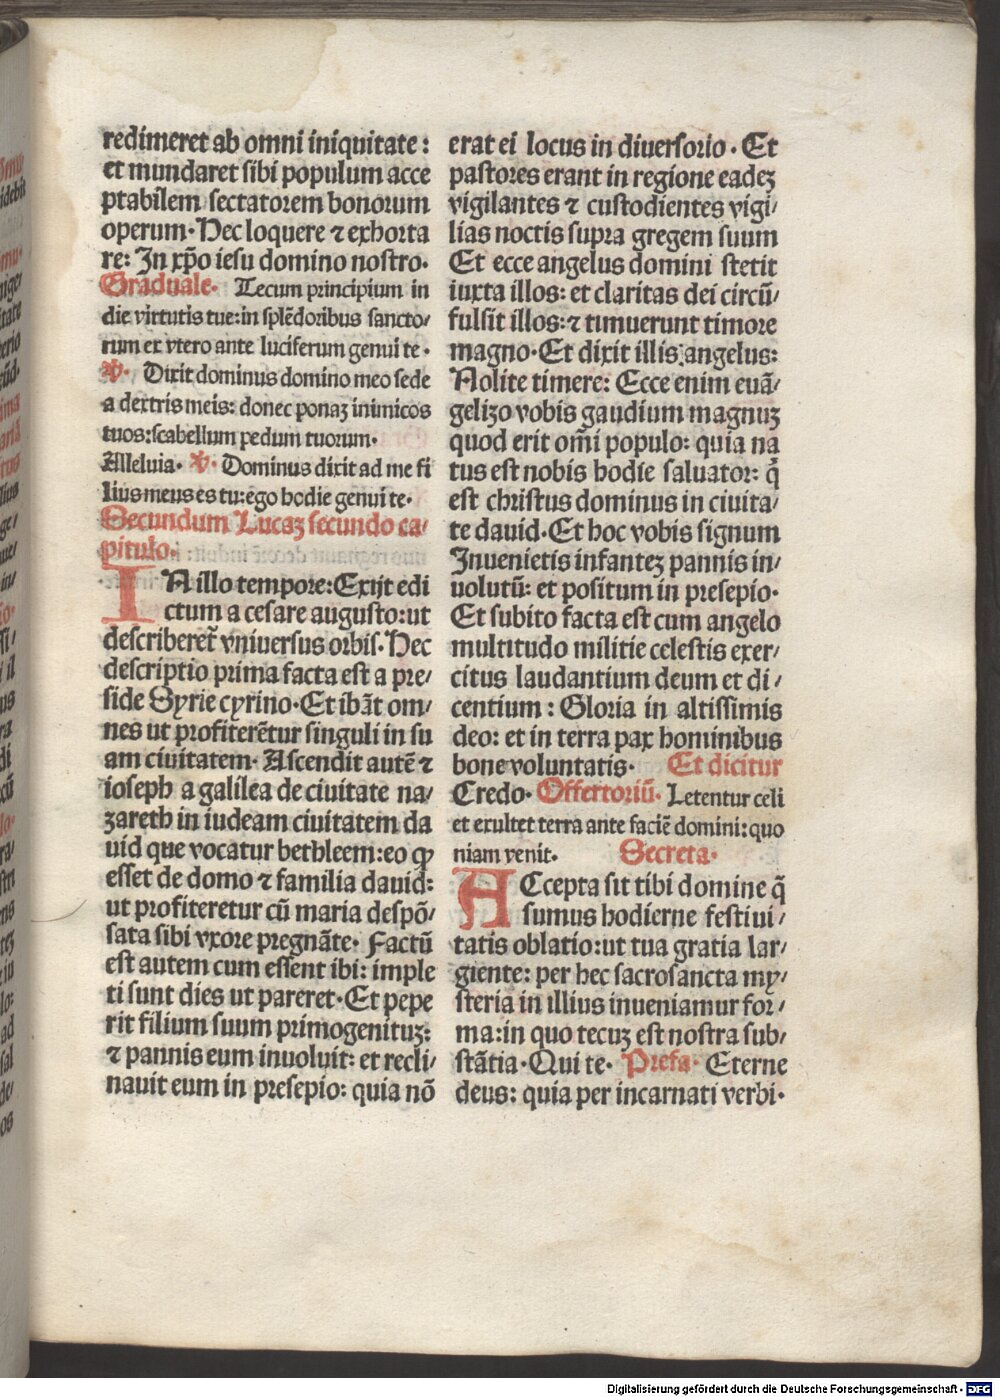 redimeret ab omni iniquitate :
et mundaret sibi populum acce
ptabilem sectatorem bonorum
operum· Hec loquere ⁊ exhorta
re: In xp̄o iesu domino nostro·
Graduale· Tecum principium in
die virtutis tue:in splēdoribus sancto/
rum ex vtero ante luciferum genui te ·
℣· Dixit dominus domino meo sede
a dextris meis: donec ponaꝫ inimicos
tuos:scabellum pedum tuorum·
Alleluia· ℣· Dominus dixit ad me fi
lius meus es tu:ego hodie genui te·
Secundum Lucaꝫ secundo ca/
pitulo·
IN illo tempore: Exijt edi
ctum a cesare augusto:ut
describeret᷑ vniuersus orbis· Hec
descriptio prima facta est a pre/
side Syrie cyrino· Et ibāt om/
nes ut profiterētur singuli in su
am ciuitatem· Ascendit autē ⁊
ioseph a galilea de ciuitate na/
zareth in iudeam ciuitatem da
uid que vocatur bethleem:eo ꝙ
esset de domo ⁊ familia dauid:
ut profiteretur cū maria despō/
sata sibi vxore pregnāte· Factū
est autem cum essent ibi: imple
ti sunt dies ut pareret· Et pepe
rit filium suum primogenituꝫ:
⁊ pannis eum inuoluit: et recli/
nauit eum in presepio: quia nō
erat ei locus in diuersorio · Et
pastores erant in regione eadeꝫ
vigilantes ⁊ custodientes vigi/
lias noctis supra gregem suum
Et ecce angelus domini stetit
iuxta illos: et claritas dei circū/
fulsit illos:⁊ timuerunt timore
magno· Et dixit illis angelus:
Nolite timere: Ecce enim euā/
gelizo vobis gaudium magnuꝫ
quod erit om̄i populo: quia na
tus est nobis hodie saluator: q̄
est christus dominus in ciuita/
te dauid· Et hoc vobis signum
Inuenietis infanteꝫ pannis in/
uolutū: et positum in presepio·
Et subito facta est cum angelo
multitudo militie celestis exer/
citus laudantium deum et di/
centium : Gloria in altissimis
deo: et in terra pax hominibus
bone voluntatis· Et dicitur
Credo· Offertoriū· Letentur celi
et exultet terra ante faciē domini:quo
niam venit· Secreta·
ACcepta sit tibi domine q̄
sumus hodierne festiui/
tatis oblatio:ut tua gratia lar/
giente: per hec sacrosancta my/
steria in illius inueniamur for/
ma:in quo tecuꝫ est nostra sub/
stātia· Qui te· Prefa· Eterne
deus: quia per incarnati verbi·
Digitalisierung gefördert durch die Deutsche Forschungsgemeinschaft - DFG